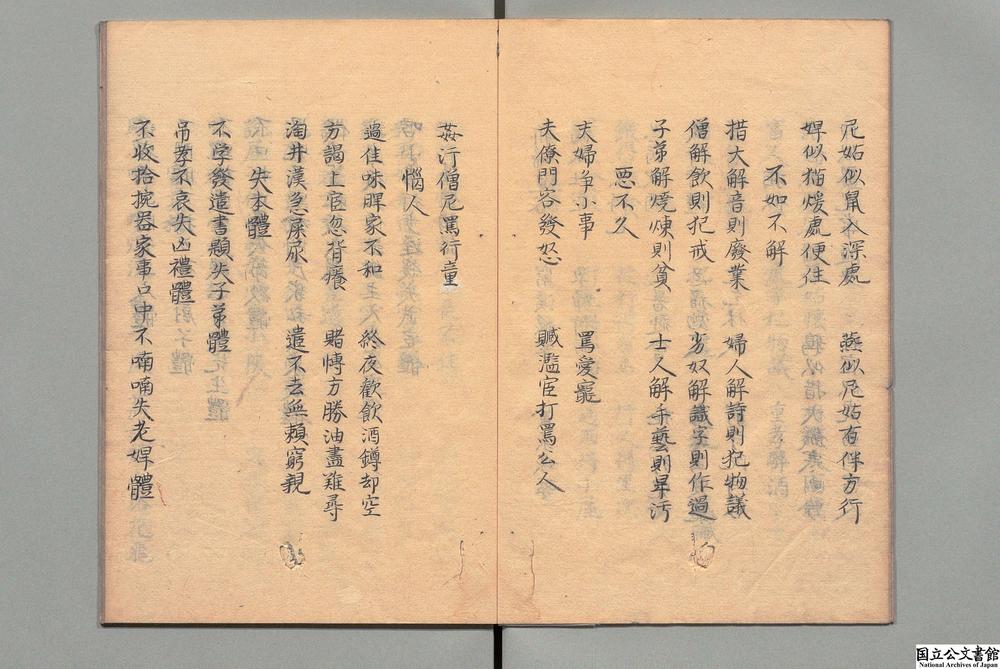 尼姑似鼠入深處　燕似尼姑有伴方行
婢似猫煖處便住
不如不解
措大解音則廢業　婦人解詩則犯物議
僧解飲則犯戒　劣奴解識字則作過
子弟解燒煉則貧　士人解手藝則卑汚
惡不久
夫婦爭小事　罵愛寵
夫僚門客發怒　贓濫官打罵公人
姦汙僧尼罵行童
惱人
遇佳味脾家不和　終夜歡飲酒鐏却空
方謁上官忽背癢　賭慱方勝油盡難尋
淘井漢急屎尿　遣不去無賴窮親
失本體
不学發遣書題失子弟體
吊孝不哀失凶禮體
不收拾捥器家事口中不喃喃失老婢體
国立公文書館
National Archives of Japan